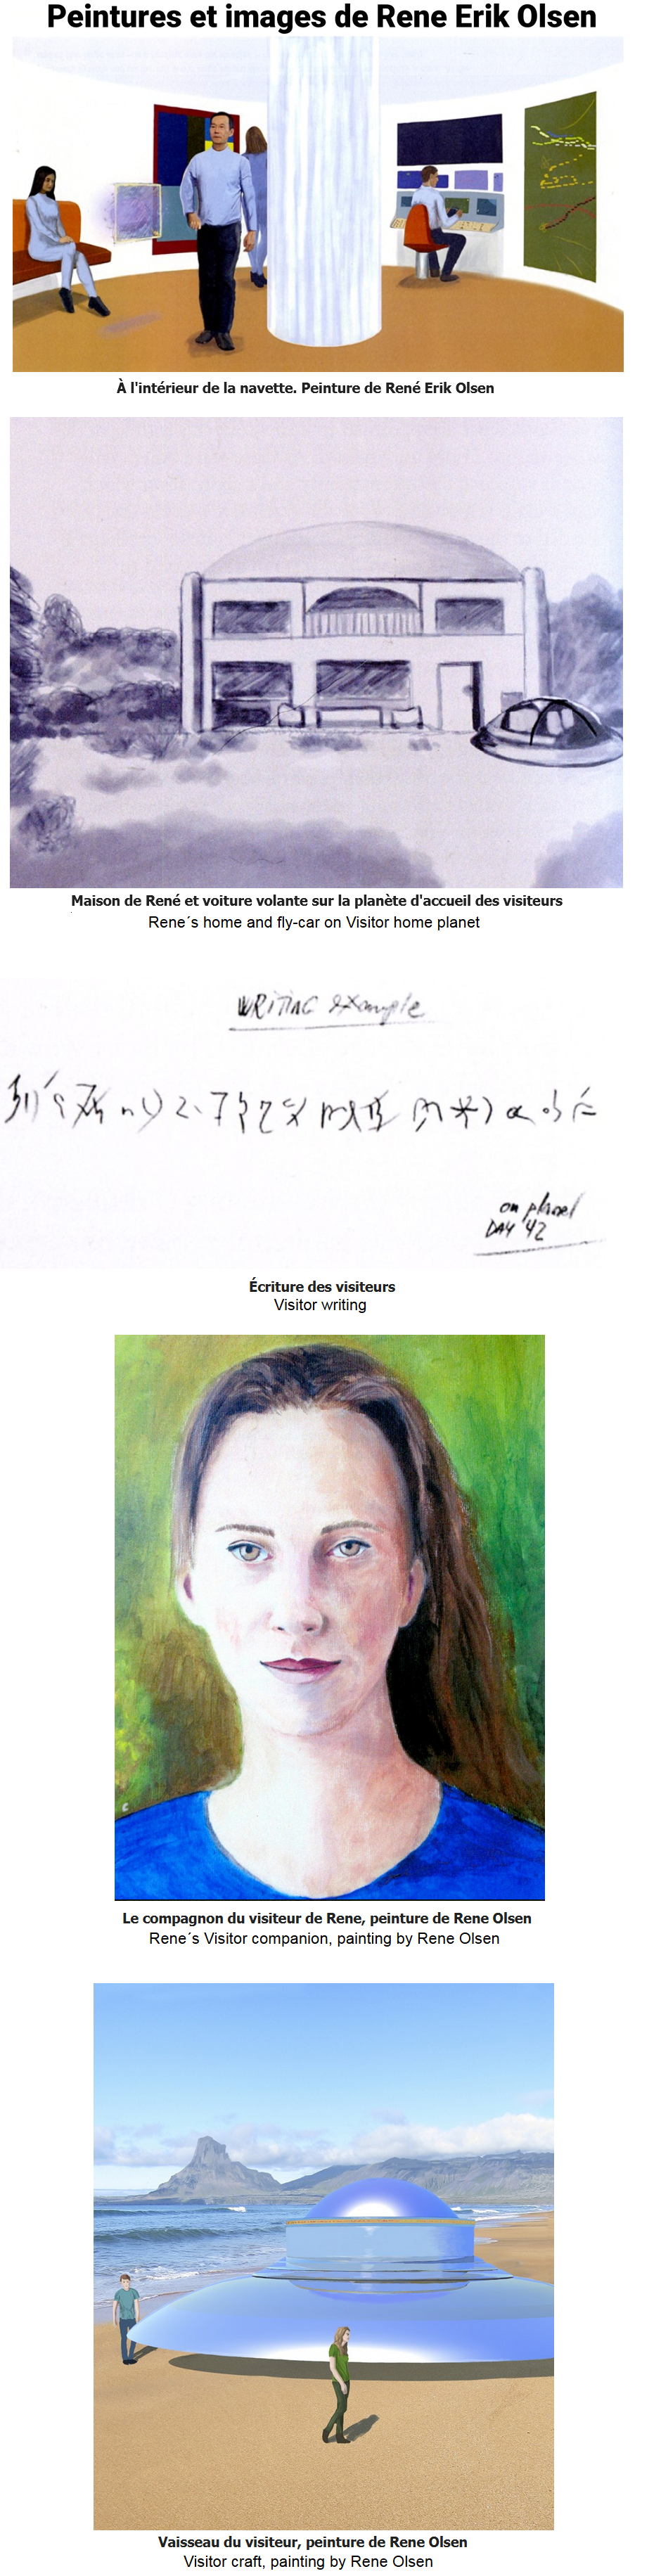 Peintures et images de Rene Erik Olsen
À l'intérieur de la navette. Peinture de René Erik Olsen
Maison de René et voiture volante sur la planète d'accueil des visiteurs
Rene´s home and fly-car on Visitor home planet
WRITING example
on planet
DAY 42
Écriture des visiteurs
Visitor writing
Le compagnon du visiteur de Rene, peinture de Rene Olsen
Rene´s Visitor companion, painting by Rene Olsen
Vaisseau du visiteur, peinture de Rene Olsen
Visitor craft, painting by Rene Olsen